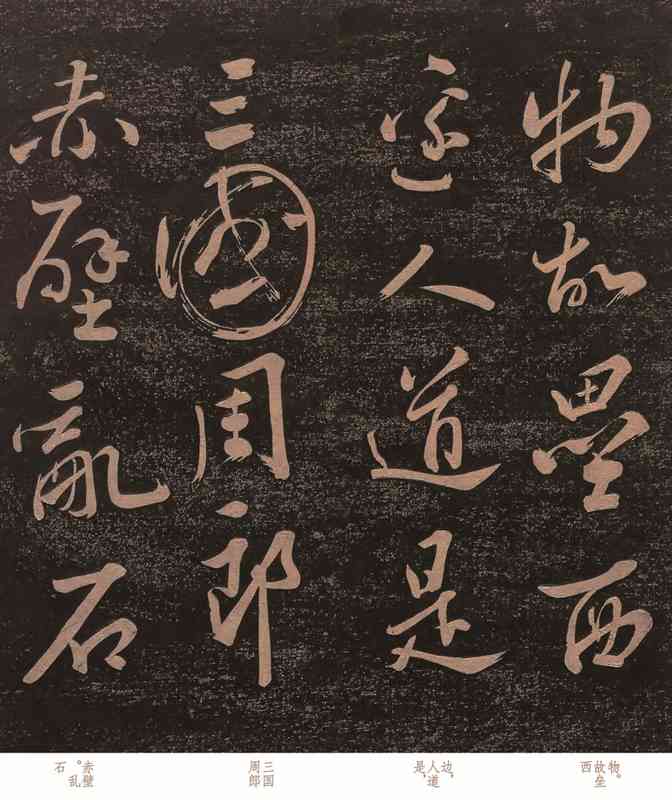 物故壘西
邊人道是
三國周郎
赤壁亂石
物。故垒西
边，人道是，
三国周郎
赤壁。乱石